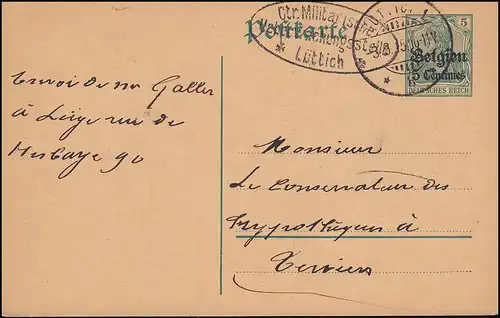 Postkarte
Ctr. Militärische
Lüttich
5
Belgien
5 Centimes
DEUTSCHES REICH
Envoi de Mr Galler
à Liége rue de
Hesbaye 90
Monsieur
Le Conservateur des
Hypothèques à
Verviers